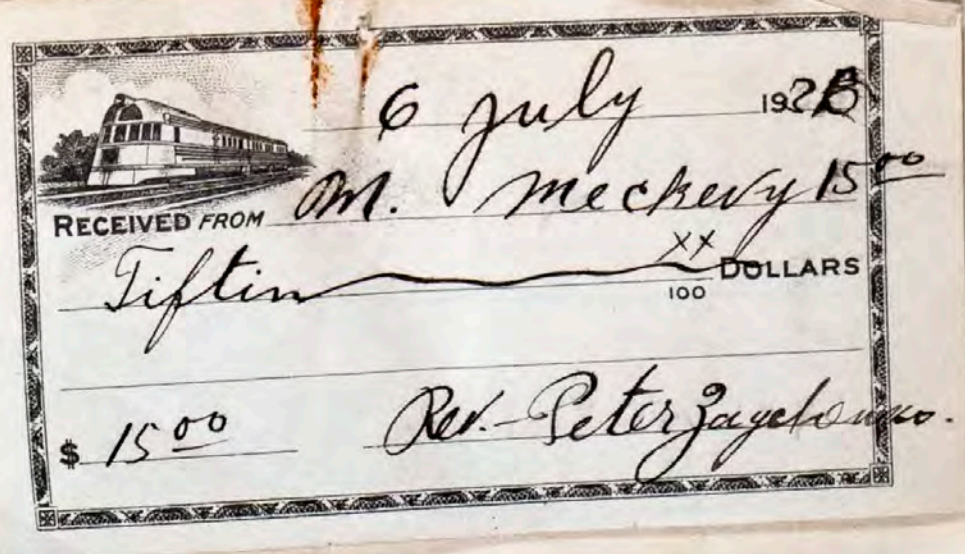 6 July 192
RECEIVED FROM M. Meckevy 15 00
Tiftin xx/100 DOLLARS
$ 15 00 Rev. Peter